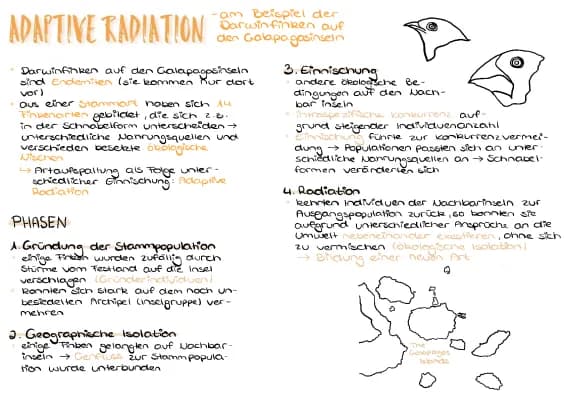 ADAPTIVE RADIATION
- am Beispiel der
Darwinfinken auf
den Galapagosinseln
• Darwinfinken auf den Galapagosinseln
sind Endemiten (sie kommen nur dort
vor)
• aus einer Stammart haben sich 14
Finkenarten gebildet, die sich z.B.
in der Schnabelform unterscheiden →
unterschiedliche Nahrungsquellen und
verschieden besetzte ökologische
Nischen
↳ Artaufspaltung als Folge unter-
schiedlicher Einnischung: Adaptive
Radiation
PHASEN
1. Gründung der Stammpopulation
• einige Finken wurden zufällig durch
Stürme vom Festland auf die Insel
verschlagen (Gründerindividuen)
• konnten sich stark auf dem noch un-
besiedelten Archipel (Inselgruppe) ver-
mehren
2. Geographische Isolation
• einige Finken gelangten auf Nachbar-
inseln → Genfluss zur Stammpopula-
tion wurde unterbunden
3. Einnischung
• andere ökologische Be-
dingungen auf den Nach-
bar inseln
• Intraspezifische Konkurrenz auf-
grund steigender Individuenanzahl
• Einnischung führte zur Konkurrenzvermei-
dung → Populationen passten sich an unter-
schiedliche Nahrungsquellen an → Schnabel-
formen veränderten sich
4. Radiation
• kehrten Individuen der Nachbarinseln zur
Ausgangspopulation zurück, so konnten sie
aufgrund unterschiedlicher Ansprüche an die
Umwelt nebeneinander existieren, ohne sich
zu vermischen (ökologische Isolation)
→ Bildung einer neuen Art
The
Galapagos
Islands